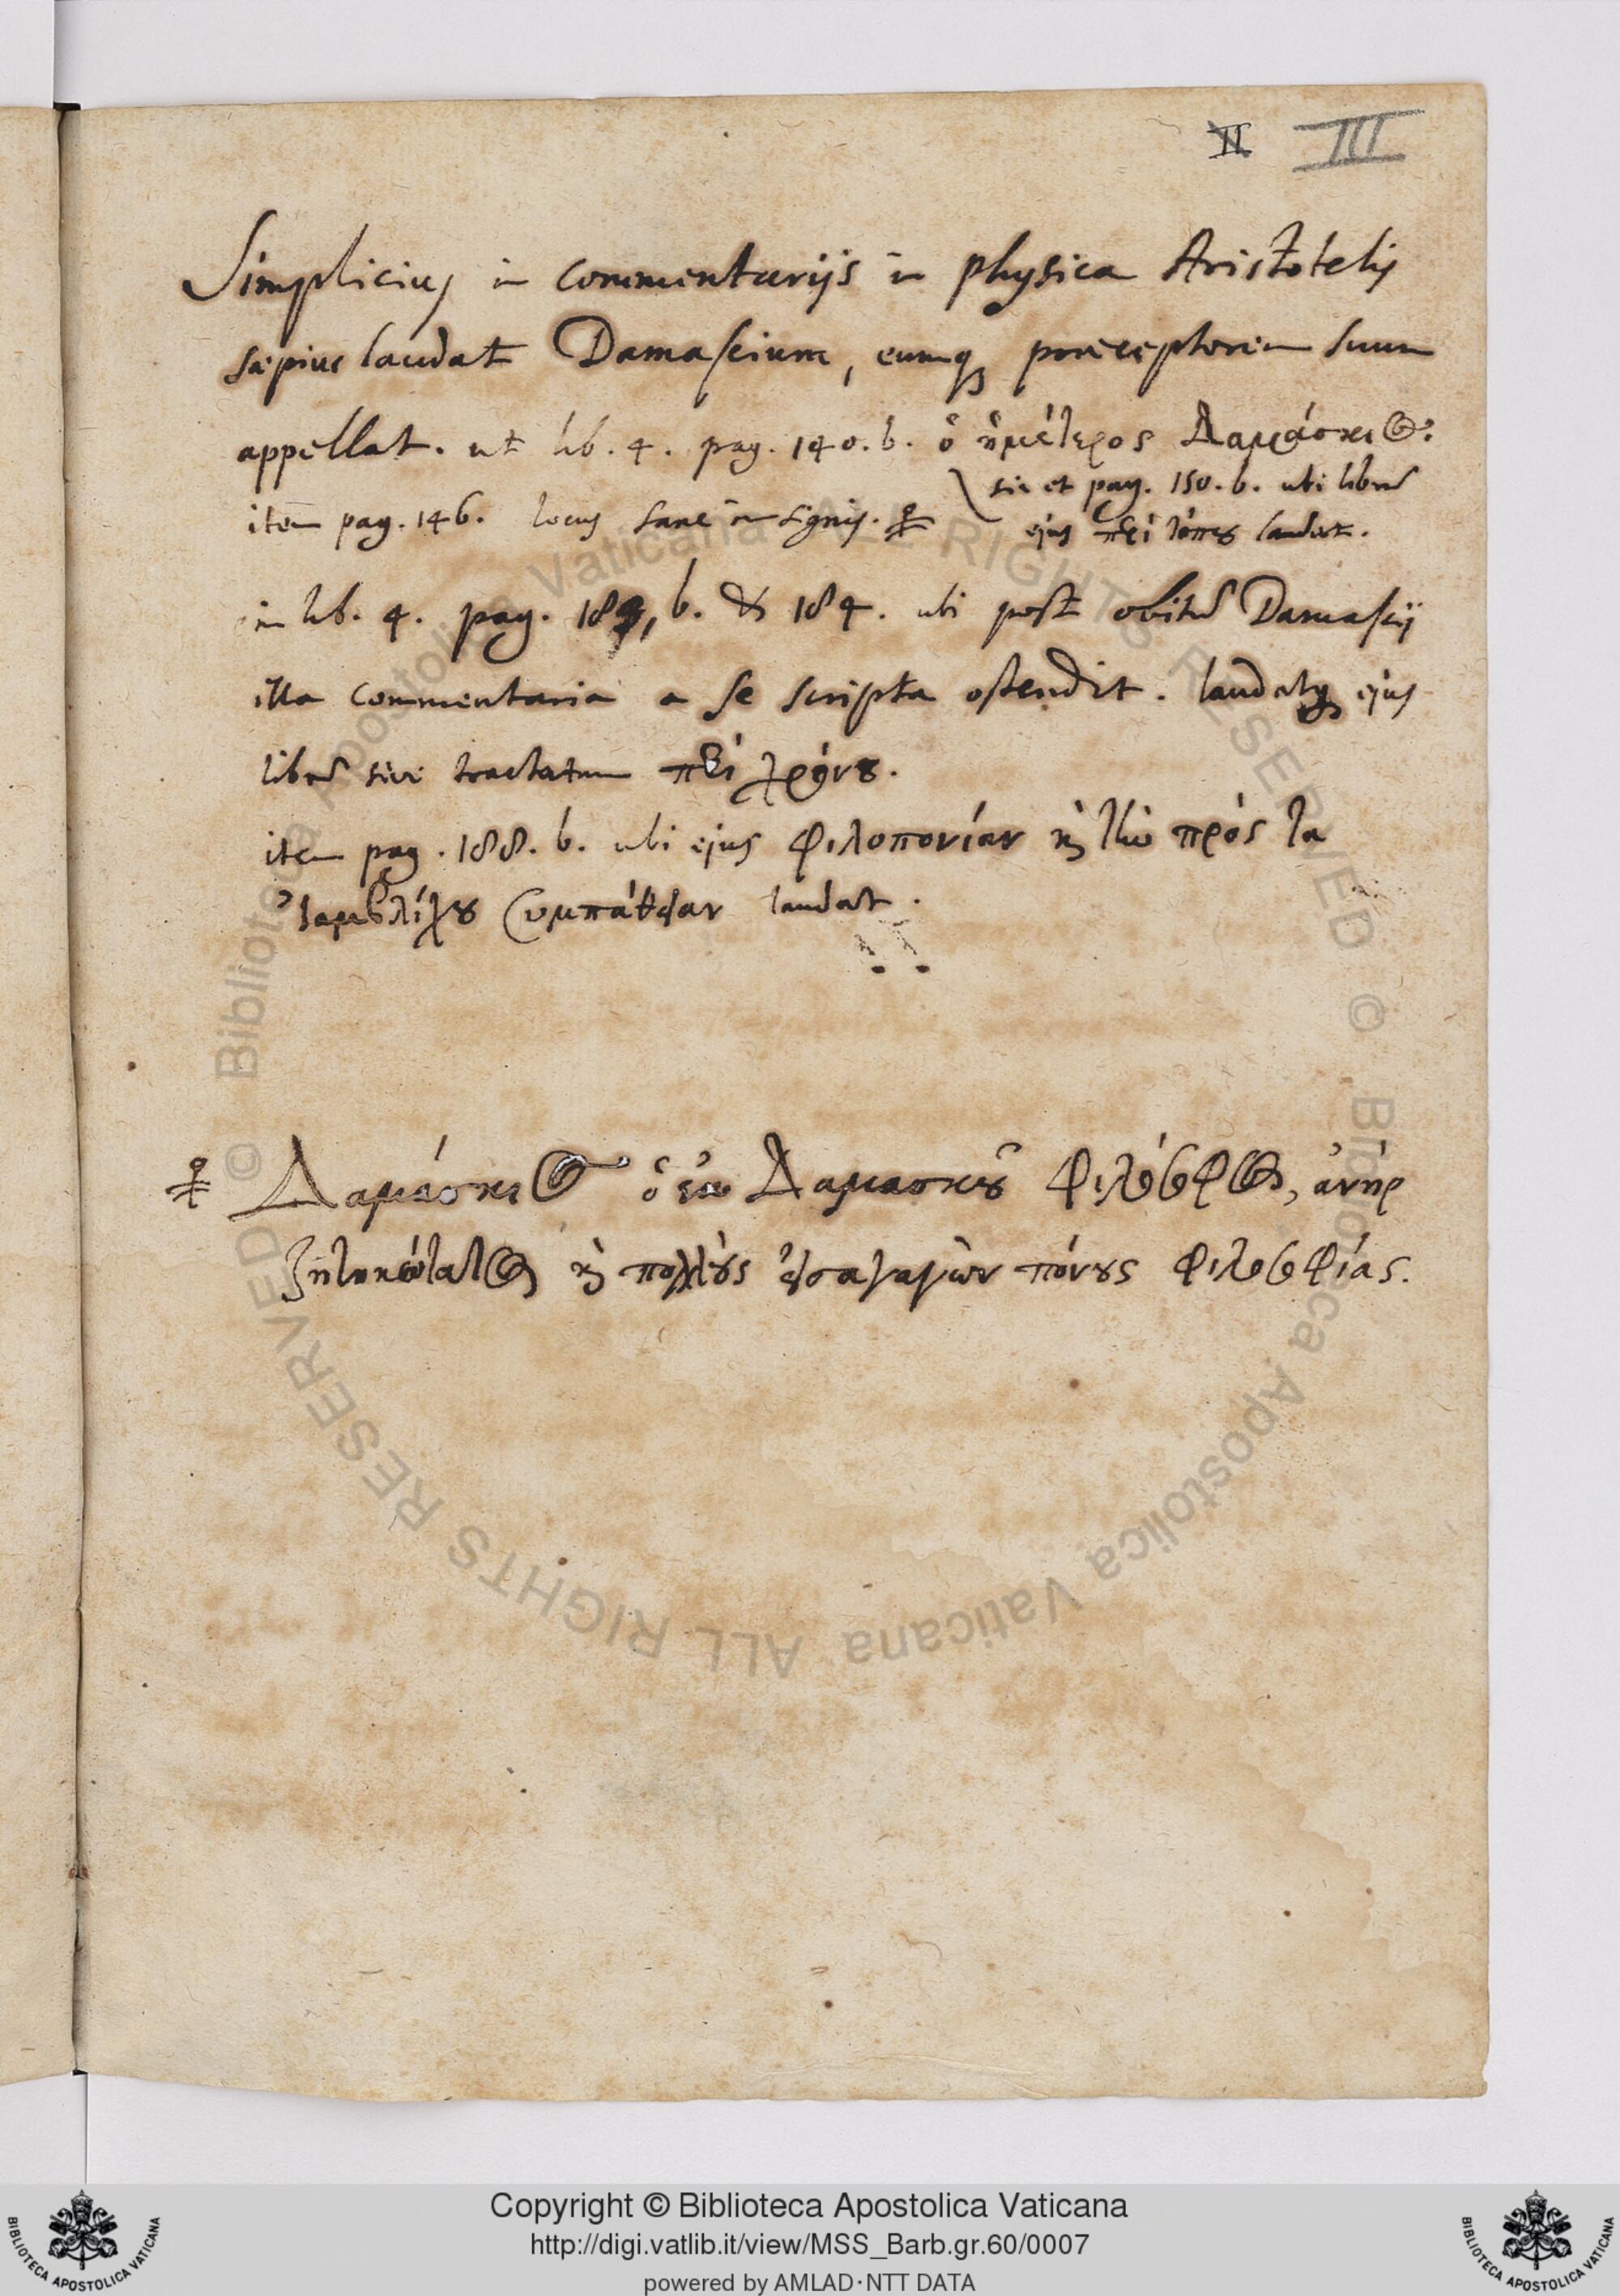 II III
Simplicius in commentarijs in physica Aristotelis
sæpius laudat Damascium, eumq præceptorem suum
appellat. ut lib. 4. pag. 140. b. ὁ ἡμέτερος Δαμάσκιος.
sic et pag. 150. b. ubi librũ
item pag. 146. locus sane insignis.
ejus περὶ τόπου laudat.
in lib. 4. pag. 183, b. & 184. ubi post obitũ Damascij
illa commentaria a se scripta ostendit. laudatq ejus
librũ sive tractatum περὶ χρόνου.
item pag. 188. b. ubi ejus φιλοπονίαν κὴ τὴν πρὸς τὰ
Ἰαμβλίχου συμπάθειαν laudat.
Δαμάσκιος ὁ ἐκ Δαμασκοῦ φιλόσοφος, ἀνὴρ
ζητικώτατος κὴ πολλοὺς εἰσαγαγὼν πόνους φιλοσοφίας.
© Biblioteca Apostolica Vaticana ALL RIGHTS RESERVED © Biblioteca Apostolica Vaticana ALL RIGHTS RESERVED
Copyright © Biblioteca Apostolica Vaticana
http://digi.vatlib.it/view/MSS_Barb.gr.60/0007
powered by AMLAD·NTT DATA
BIBLIOTECA APOSTOLICA VATICANA
BIBLIOTECA APOSTOLICA VATICANA